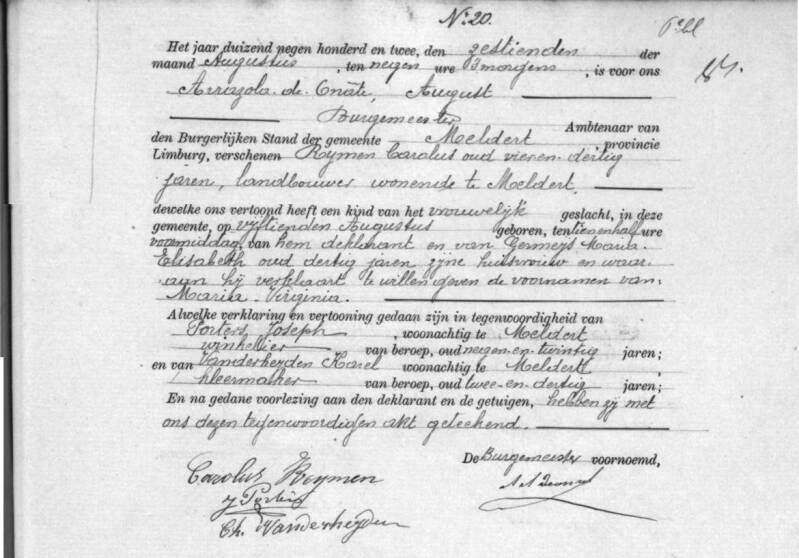 No: 20.
Het jaar duizend negen honderd en twee, den zestienden der
maand Augustus, ten negen ure 's morgens, is voor ons
Arrazola de Oñate, August
Burgemeester
Ambtenaar van
den Burgerlijken Stand der gemeente Meldert provincie
Limburg, verschenen Reymen Carolus oud vier-en-dertig
jaren, landbouwer wonende te Meldert,
dewelke ons vertoond heeft een kind van het vrouwelijk geslacht, in deze
gemeente, op vijftienden Augustus geboren, ten tien en half ure
voormiddag, van hem deklarant en van Germeys Maria
Elisabeth oud dertig jaren zijne huisvrouw en waar-
aan hij verklaart te willen geven de voornamen van:
Maria-Virginia.
Alwelke verklaring en vertooning gedaan zijn in tegenwoordigheid van
Joseph, woonachtig te Meldert
winkelier van beroep, oud negen-en-twintig jaren;
en van Vanderheyden Karel woonachtig te Meldert
kleermaker van beroep, oud twee-en-dertig jaren;
En na gedane voorlezing aan den deklarant en de getuigen, hebben zij met
ons dezen tegenwoordigen akt geteekend.
De Burgemeester voornoemd,
Carolus Reymen
Ch. Vanderheyden